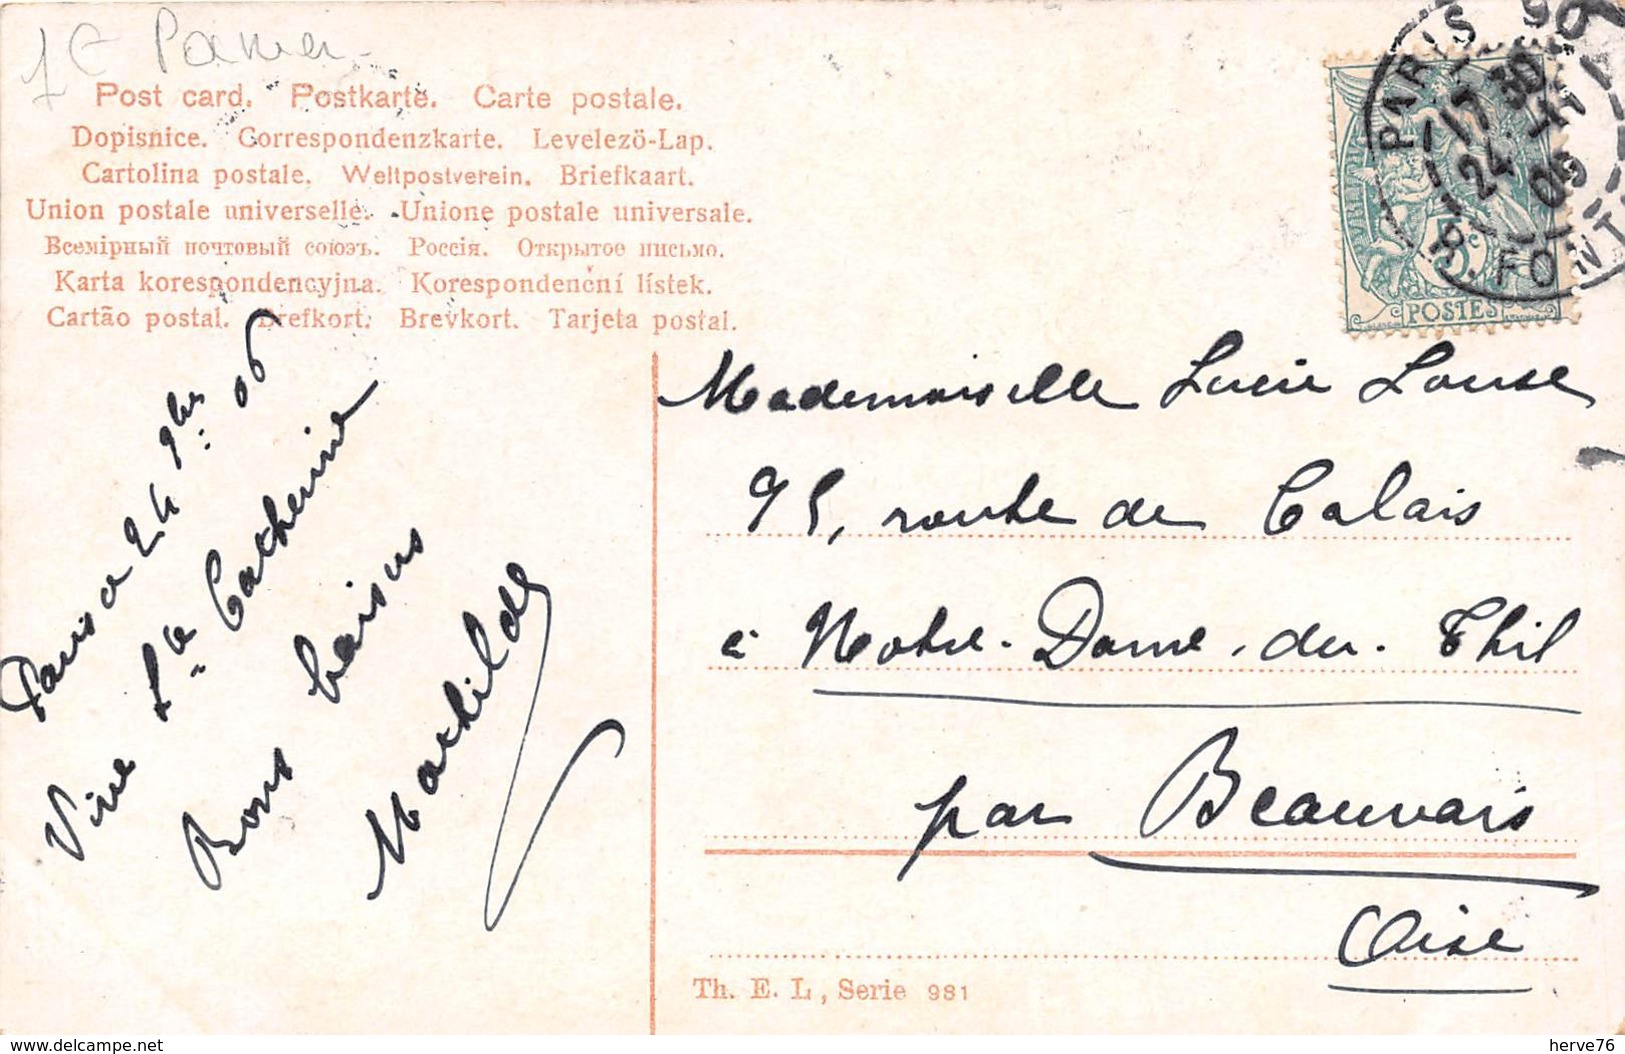 Post card. Postkarte. Carte postale.
Dopisnice. Correspondenzkarte. Levelezö-Lap.
Cartolina postale. Weltpostverein. Briefkaart.
Union postale universelle. Unione postale universale.
Всемірный почтовый союзъ. Россія. Открытое письмо.
Karta korespondencyjna. Korespondenční lístek.
Cartão postal. Brefkort. Brevkort. Tarjeta postal.
PARIS 90
17 30
24
R. FONT
5c
POSTES
Paris ce 24 9bre 06
Vive Ste Catherine
Bons baisers
Mathilde
Mademoiselle Lucie
95, route de Calais
à Notre-Dame-du-Thil
par Beauvais
Oise
Th. E. L, Serie 981
www.delcampe.net
herve76